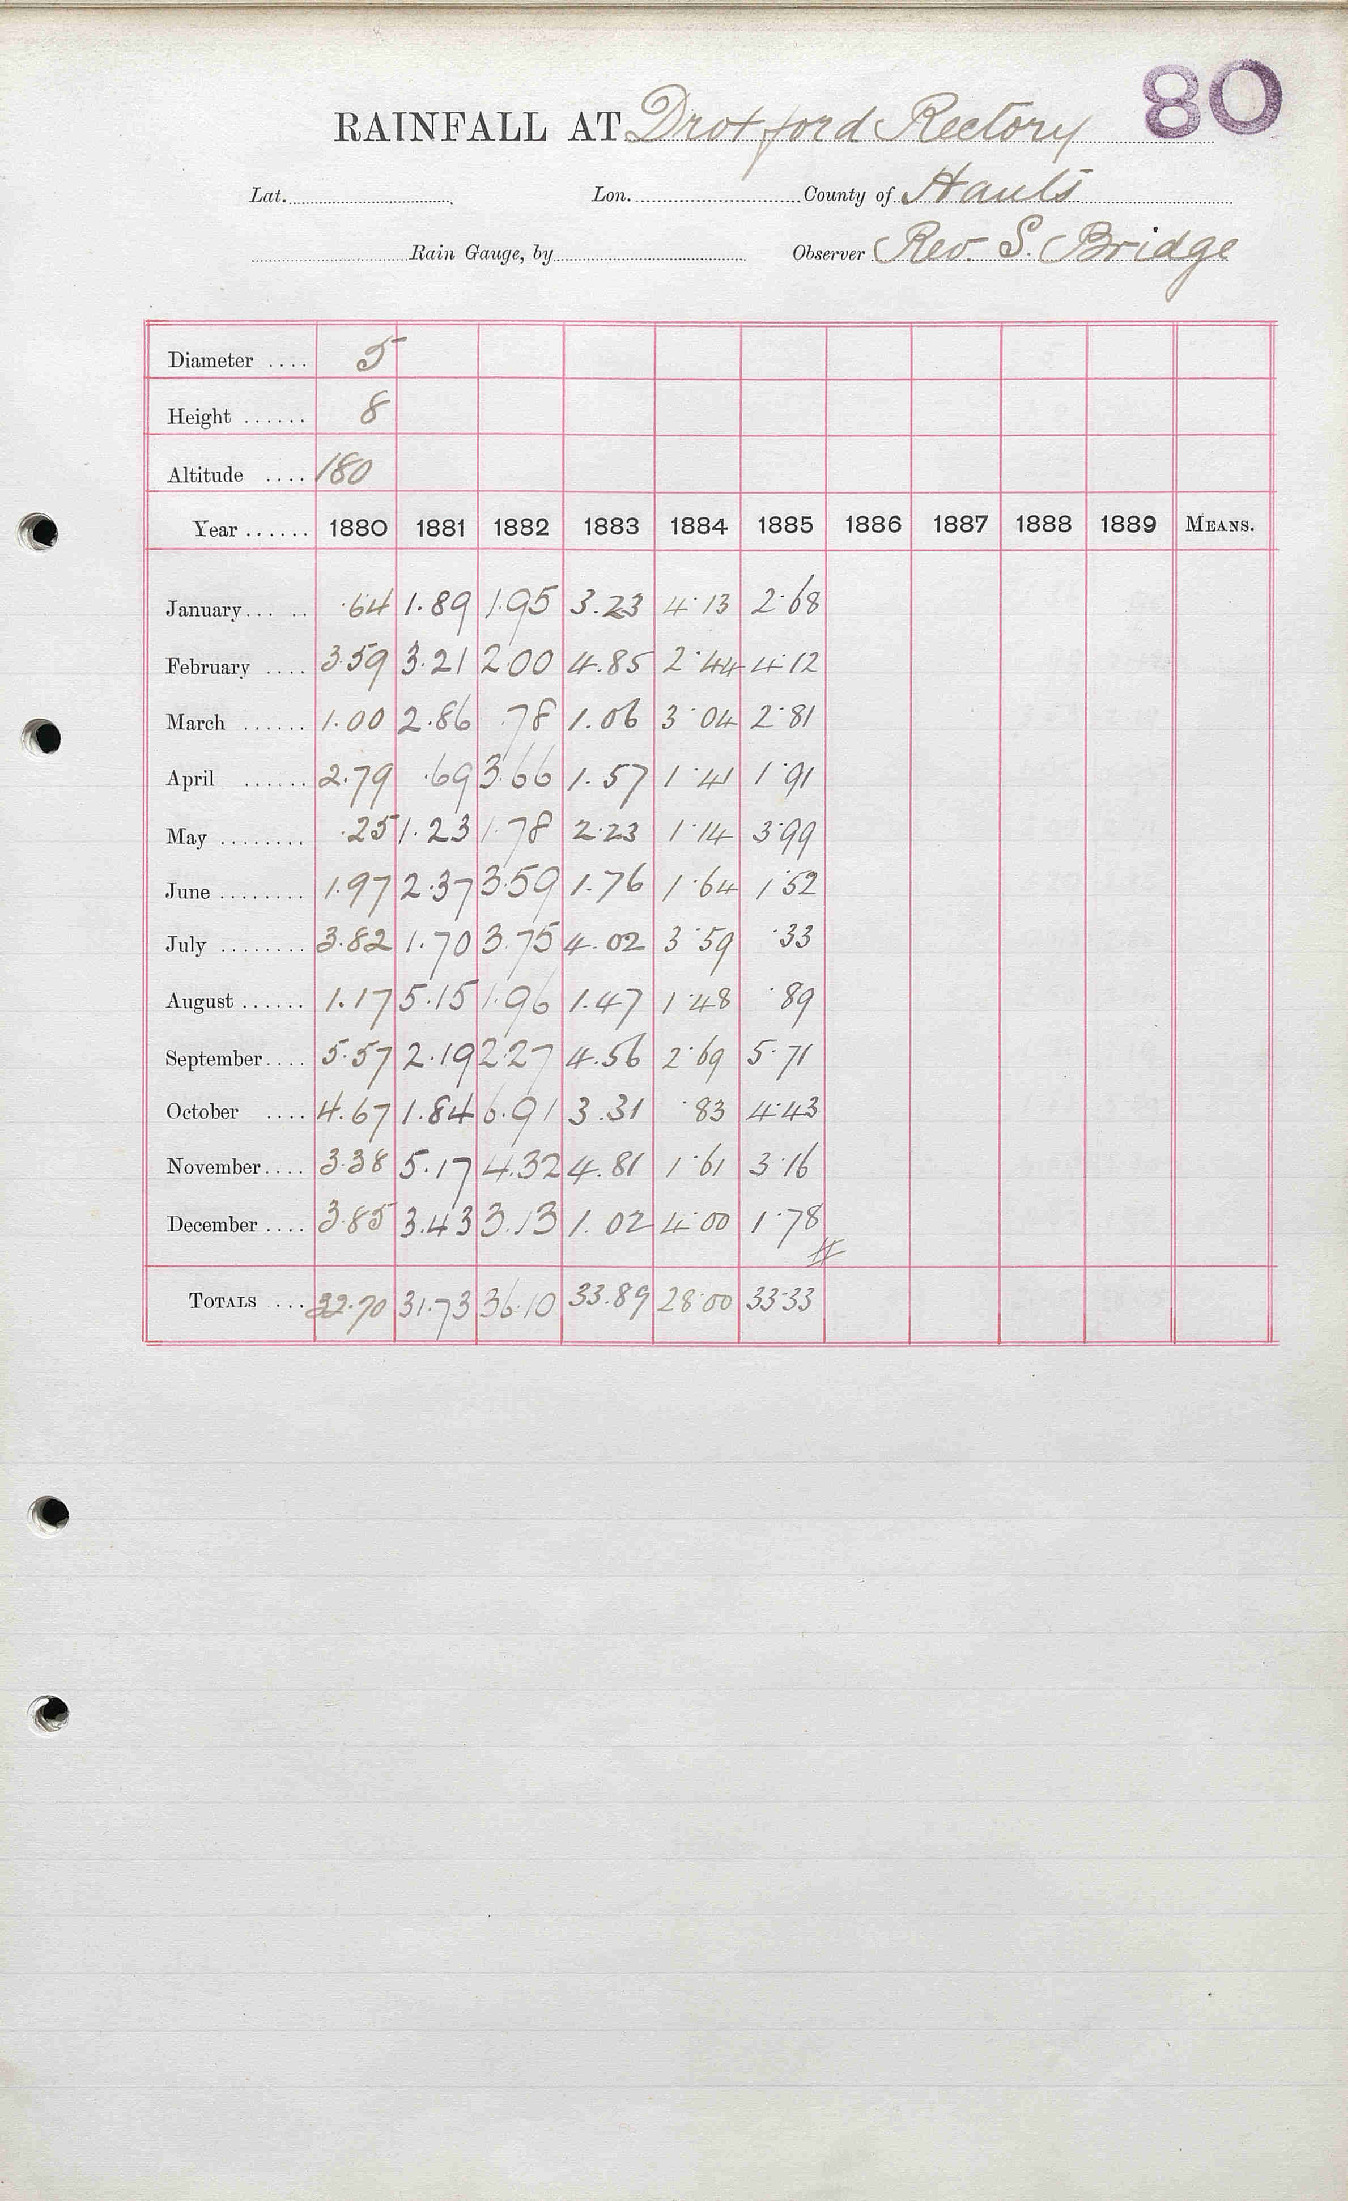 80
RAINFALL AT Droxford Rectory
Lat. Lon. County of Hants
Rain Gauge, by Observer Rev. S. Bridge
Diameter .... 5
Height ...... 8
Altitude .... 180
Year ...... 1880 1881 1882 1883 1884 1885 1886 1887 1888 1889 MEANS.
January.. .. .64 1.89 1.95 3.23 4.13 2.68
February .... 3.59 3.21 2.00 4.85 2.44 4.12
March ...... 1.00 2.86 .78 1.06 3.04 2.81
April ...... 2.79 .69 3.66 1.57 1.41 1.91
May ........ .25 1.23 1.78 2.23 1.14 3.99
June ........ 1.97 2.37 3.59 1.76 1.64 1.52
July ........ 3.82 1.70 3.75 4.02 3.59 .33
August ...... 1.17 5.15 1.96 1.47 1.48 .89
September.... 5.57 2.19 2.27 4.56 2.69 5.71
October .... 4.67 1.84 6.91 3.31 .83 4.43
November.... 3.38 5.17 4.32 4.81 1.61 3.16
December .... 3.85 3.43 3.13 1.02 4.00 1.78
TOTALS ... 32.70 31.73 36.10 33.89 28.00 33.33